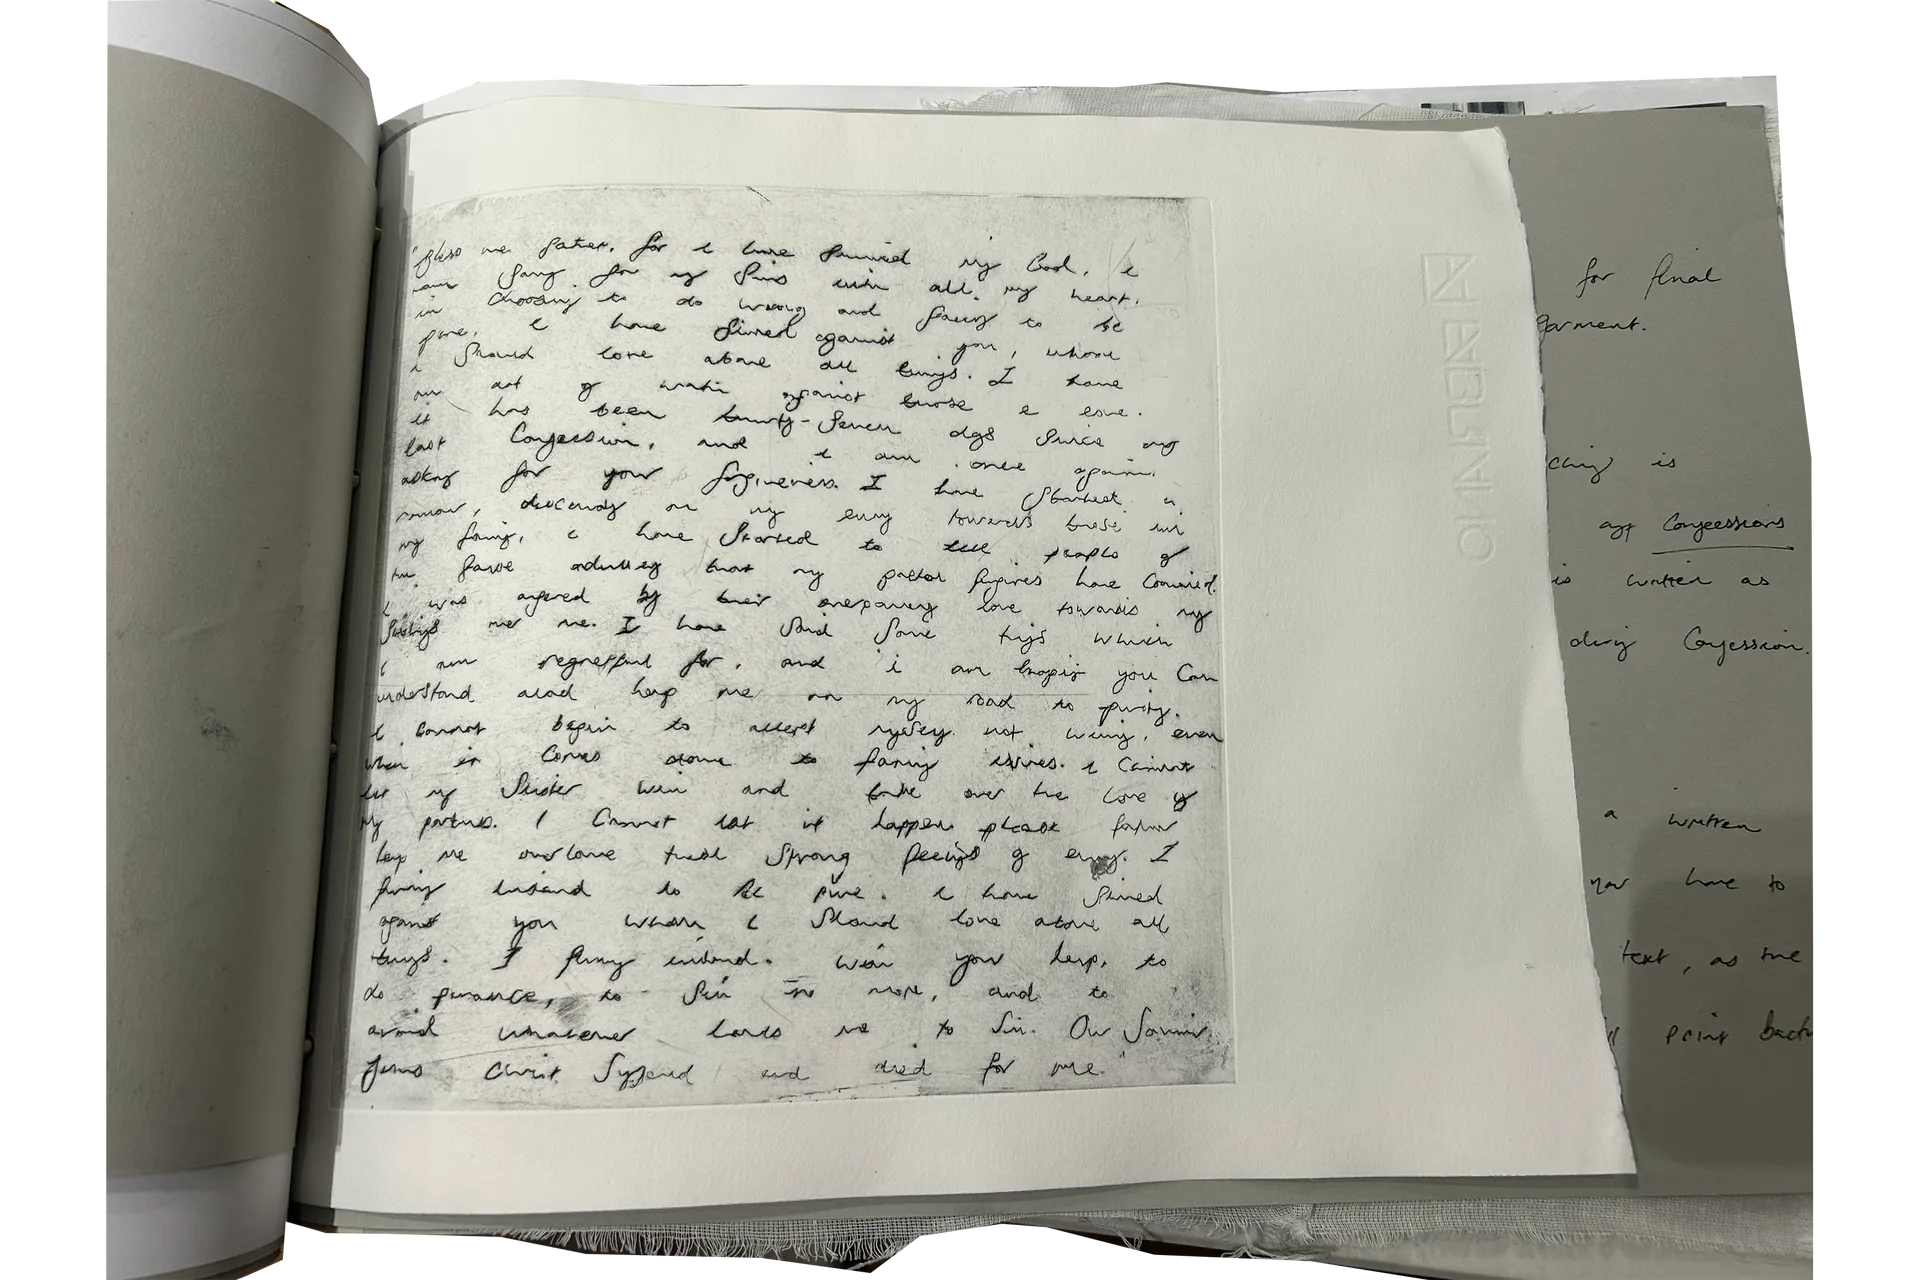 "Bless me father, for i have sinned my God, i
am sorry for my sins with all my heart.
in choosing to do wrong and failing to be
pure, i have sinned against you, whom
i should love above all things. I have
an act of wrath against those i love.
it has been twenty-seven days since my
last Confession, and i am once again
asking for your forgiveness. I have started a
rumour, on my envy towards those in
my family, i have started to tell people of
the false adultery that my pastor figures have
i was angered by their love towards my
siblings over me. I have said some things which
i am regretful for, and i am hoping you can
understand and help me on my road to purity.
i cannot begin to accept myself not winning, even
when it comes down to family issues. i cannot
let my sister win and take over the love of
my parents. I cannot let it happen please father
help me overcome these strong feelings of envy. I
firmly intend to be pure. i have sinned
against you whom i should love above all
things. I firmly intend. With your help, to
do penance, to sin no more, and to
avoid whatever leads me to sin. Our Saviour
Jesus Christ suffered and died for me"
FABRIANO
for final
garment.
is
Confessions
is written as
during Confession.
a written
you have to
text, as the
print back